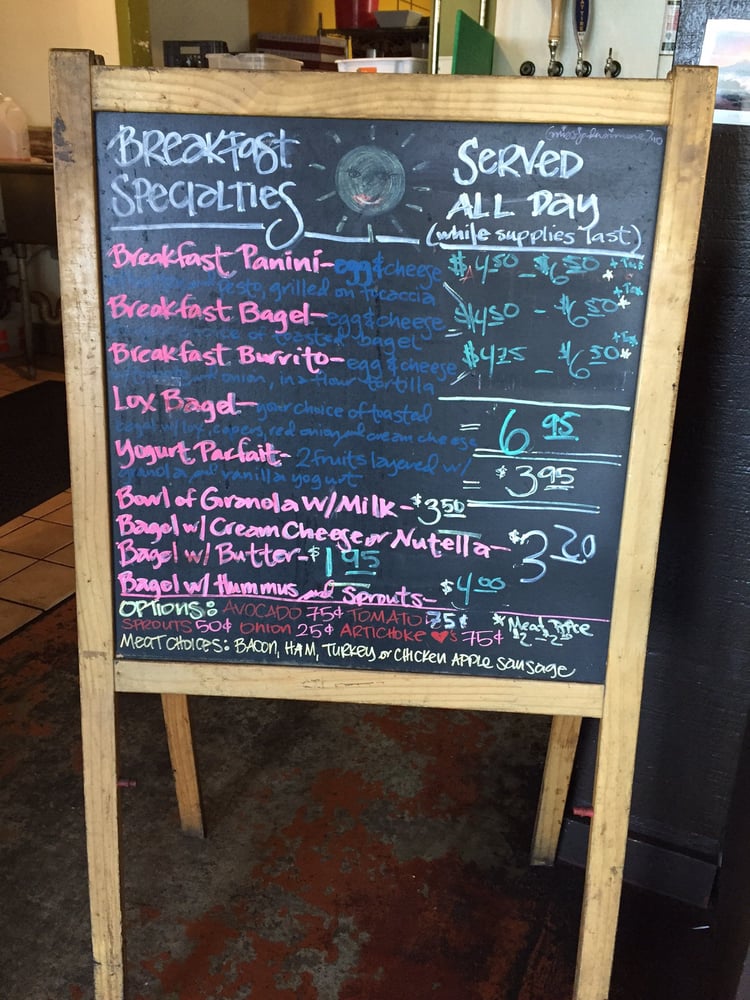 BREAKFAST SPECIALTIES
SERVED ALL DAY
(while supplies last)
Breakfast Panini- egg & cheese $4.50 - $6.50 +Tax *
pesto, grilled on focaccia
Breakfast Bagel- egg & cheese $4.50 - $6.50 +Tax *
of toasted bagel
Breakfast Burrito- egg & cheese $4.75 - $6.50 +Tax *
and onion, in a flour tortilla
Lox Bagel- your choice of toasted = 6.95
bagel w/ lox, capers, red onion and cream cheese
Yogurt Parfait- 2 fruits layered w/ = $3.95
granola and vanilla yogurt
Bowl of Granola w/ Milk- $3.50
Bagel w/ Cream Cheese or Nutella- $3.20
Bagel w/ Butter- $1.95
Bagel w/ Hummus and Sprouts- $4.00
OPTIONS: AVOCADO 75¢ TOMATO 75¢
SPROUTS 50¢ ONION 25¢ ARTICHOKE ♥'s 75¢
* Meat Price
MEAT CHOICES: BACON, HAM, TURKEY or CHICKEN APPLE SAUSAGE